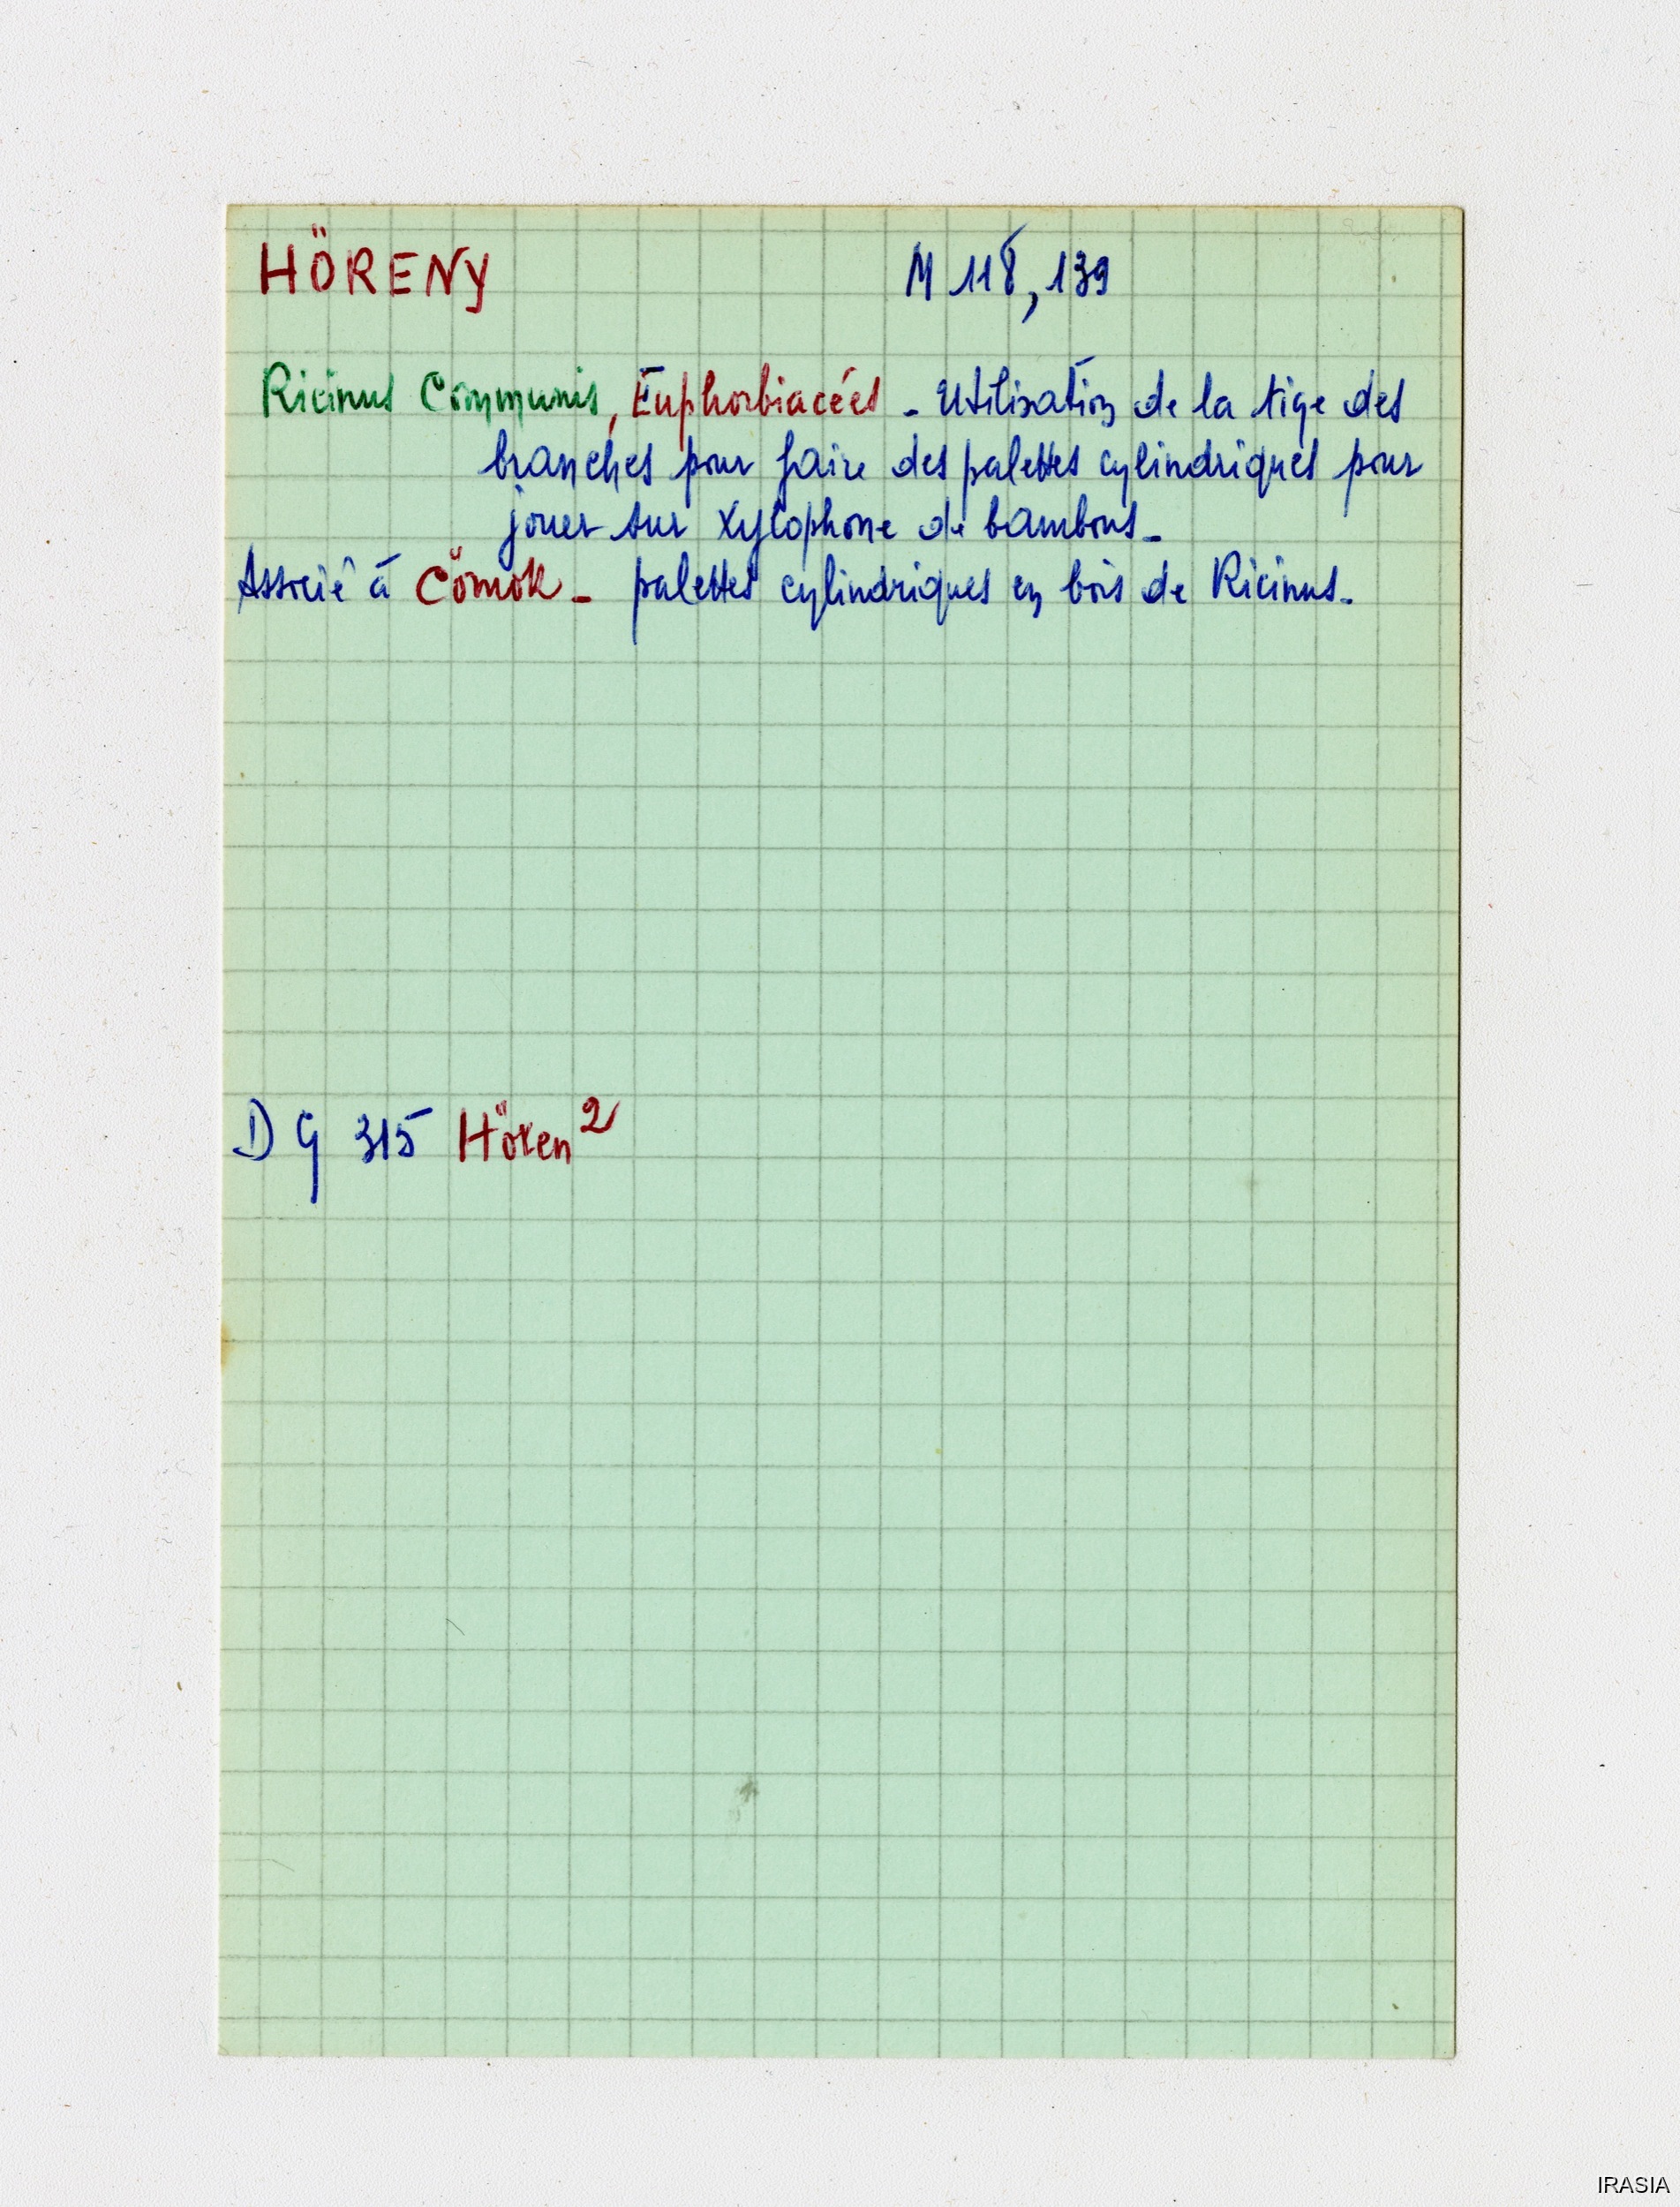 HÖRENY M 118, 139
Ricinus Communis, Euphorbiacées - Utilisation de la tige des
branches pour faire des palettes cylindriques pour
jouer sur xylophone de bambous -
Associé à Cömok - palettes cylindriques en bois de Ricinus.
DG 315 Hören²
IRASIA